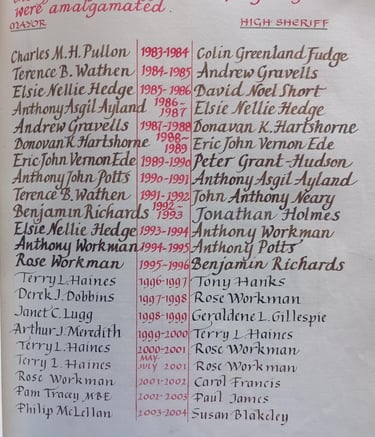 were amalgamated.
MAYOR HIGH SHERIFF
Charles M.H. Pullon 1983-1984 Colin Greenland Fudge
Terence B. Wathen 1984-1985 Andrew Gravells
Elsie Nellie Hedge 1985-1986 David Noel Short
Anthony Asgil Ayland 1986-1987 Elsie Nellie Hedge
Andrew Gravells 1987-1988 Donavan K. Hartshorne
Donovan K. Hartshorne 1988-1989 Eric John Vernon Ede
Eric John Vernon Ede 1989-1990 Peter Grant-Hudson
Anthony John Potts 1990-1991 Anthony Asgil Ayland
Terence B. Wathen 1991-1992 John Anthony Neary
Benjamin Richards 1992-1993 Jonathan Holmes
Elsie Nellie Hedge 1993-1994 Anthony Workman
Anthony Workman 1994-1995 Anthony Potts
Rose Workman 1995-1996 Benjamin Richards
Terry L. Haines 1996-1997 Tony Hanks
Derek J. Dobbins 1997-1998 Rose Workman
Janet C. Lugg 1998-1999 Geraldene L. Gillespie
Arthur J. Meredith 1999-2000 Terry L. Haines
Terry L. Haines 2000-2001 Rose Workman
Terry L. Haines MAY-JULY 2001 Rose Workman
Rose Workman 2001-2002 Carol Francis
Pam Tracey MBE 2002-2003 Paul James
Philip McLellan 2003-2004 Susan Blakeley